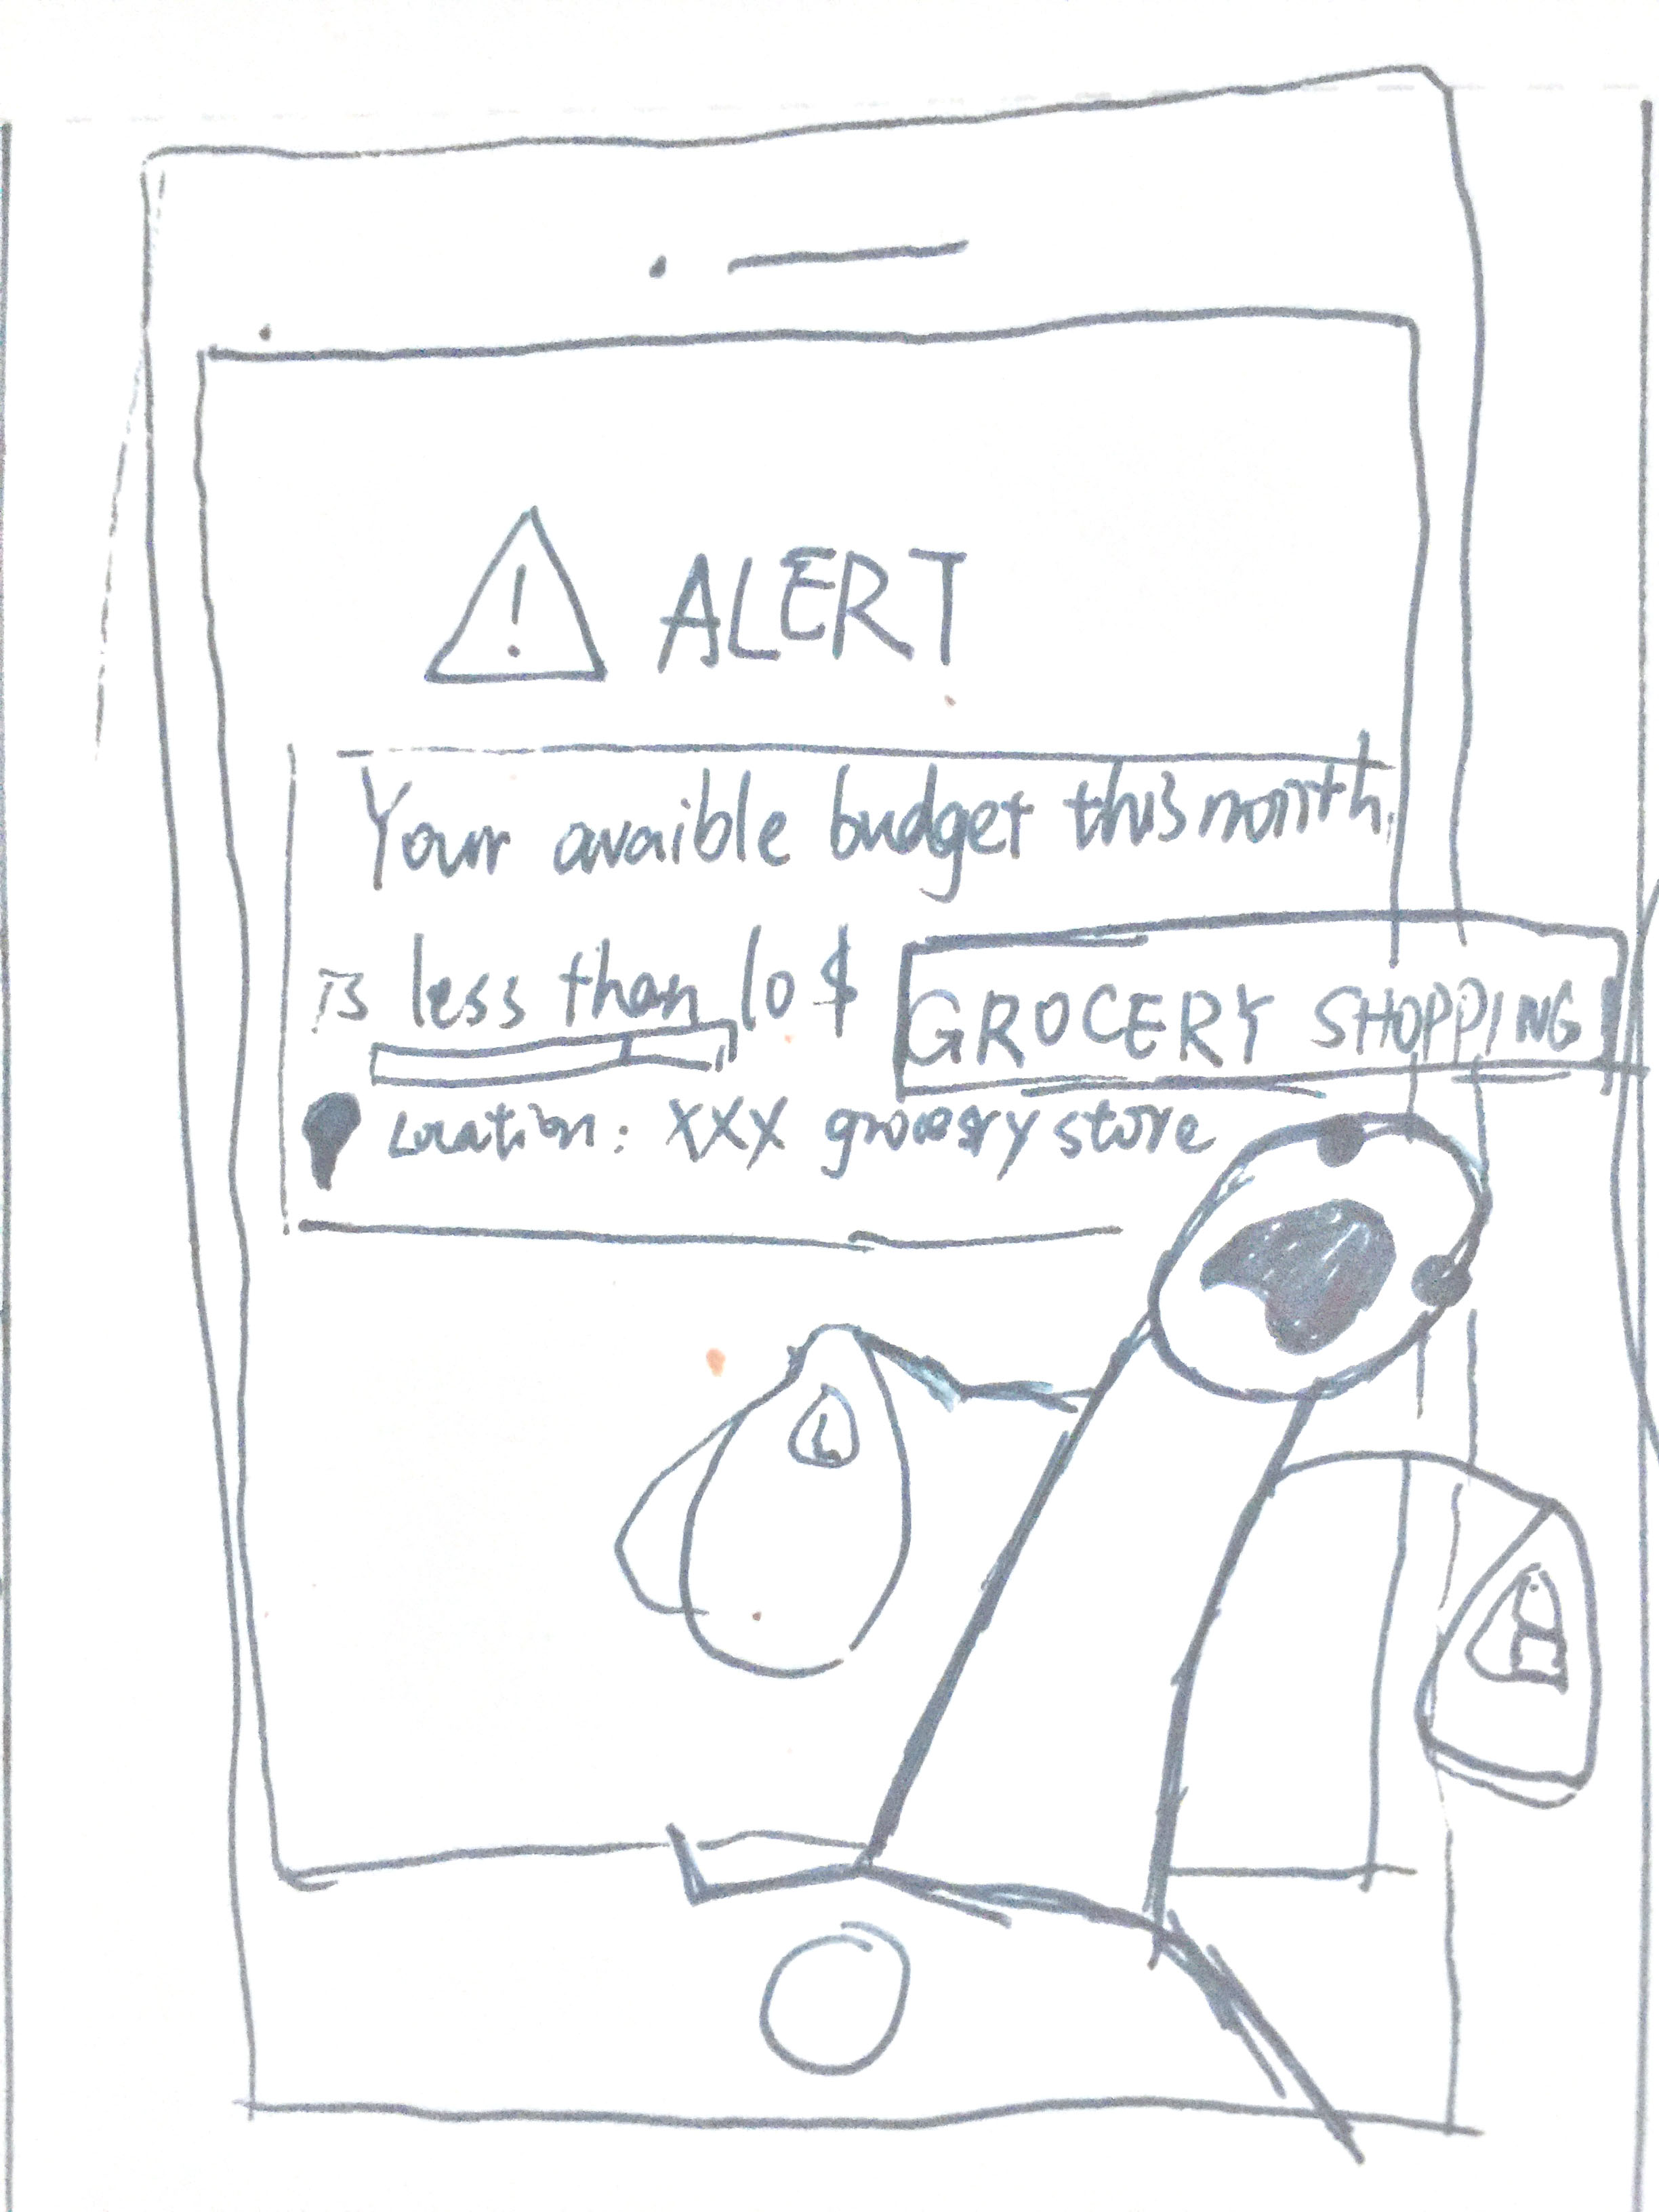 ! ALERT
Your avaible budget this month
is less than 10 $
GROCERY SHOPPING
Location: XXX grocery store
L